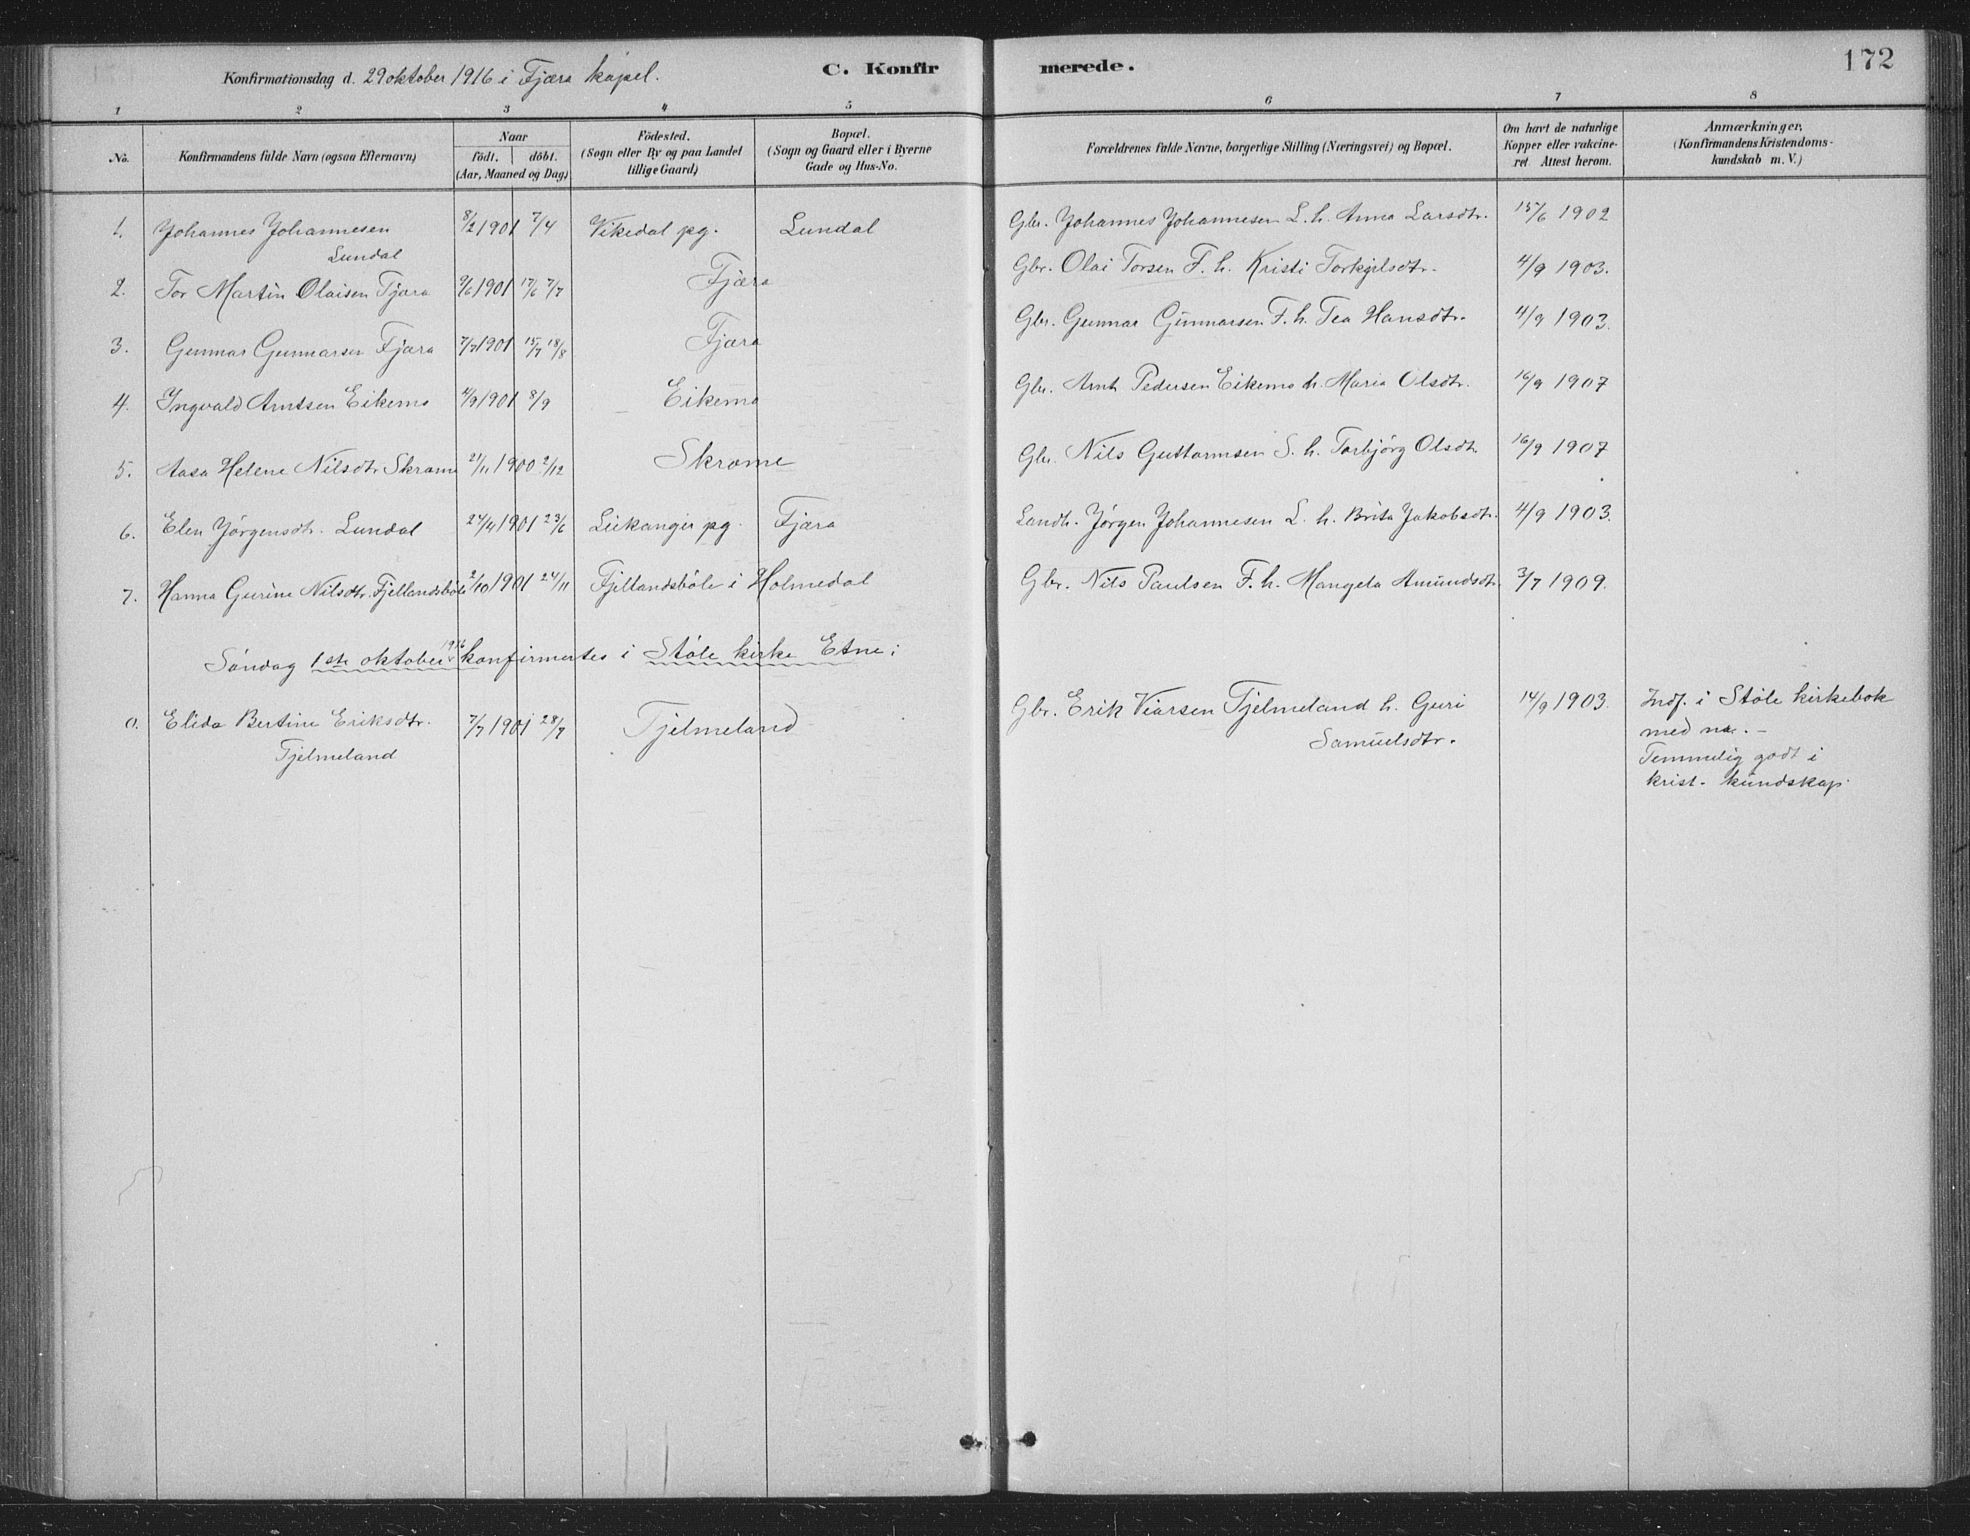 172
Konfirmationsdag d. 29 oktober 1916 i Fjæra kapel. C. Konfirmerede.
1 2 3 4 5 6 7 8
No. Konfirmandens fulde Navn (ogsaa Efternavn) Naar födt. döbt. (Aar, Maaned og Dag) Födested. (Sogn eller By og paa Landet tillige Gaard) Bopæl. (Sogn og Gaard eller i Byerne Gade og Hus-No. Forældrenes fulde Navne, borgerlige Stilling (Næringsvei) og Bopæl. Om havt de naturlige Kopper eller vakcineret Attest herom. Anmærkninger. (Konfirmandens Kristendomskundskab m. V.)
1. Johannes Johannesen Lundal 8/2 1901 7/4 Vikedal pg. Lundal Gbr. Johannes Johannesen L. h. Anna Larsdtr. 15/6 1902
2. Tor Martin Olaisen Fjæra 9/6 1901 17/6 7/7 Fjæra Gbr. Olai Torsen F. h. Kristi Torkjelsdtr. 4/9 1903.
3. Gunnar Gunnarsen Fjæra 7/7 1901 15/7 18/8 Fjæra Gbr. Gunnar Gunnarsen F. h. Tea Hansdtr. 4/9 1903.
4. Ingvald Arntsen Eikemo 4/9 1901 8/9 Eikemo Gbr. Arnt Pedersen Eikemo h. Maria Olsdtr. 16/9 1907
5. Aasa Helene Nilsdtr. Skrome 21/11 1900 2/12 Skrome Gbr. Nils Guttormsen S. h. Torbjörg Olsdtr. 16/9 1907
6. Elen Jørgensdtr. Lundal 24/4 1901 23/6 Leikanger pg. Fjæra Landh. Jørgen Johannesen L. h. Brita Jakobsdtr. 4/9 1903.
7. Hanna Gurine Nilsdtr. Fjellandsböle 2/10 1901 24/11 Fjellandsböle i Holmedal Gbr. Nils Paulsen F. h. Mangela Amundsdtr. 3/7 1909.
Søndag 1ste oktober 1916 konfirmertes i Støle kirke Etne:
0. Elida Bertine Eriksdtr. Tjelmeland 7/7 1901 28/7 Tjelmeland Gbr. Erik Viarsen Tjelmeland h. Guri Samuelsdtr. 14/9 1903. Indf. i Støle kirkebok
med nr. –
Temmelig godt i
krist. kundskap.